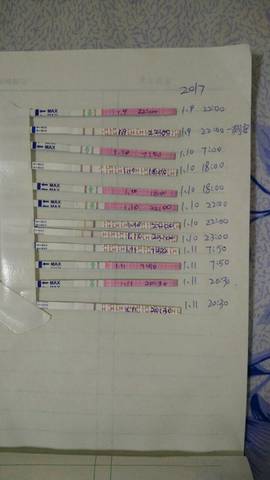 2017
MAX 1.9 22:00 1.9 22:00
1.9 22:00 1.9 22:00
MAX 1.10 7:50 1.10 7:00
1.10 18:00 1.10 18:00
MAX 1.10 18:00 1.10 18:00
MAX 1.10 22:00 1.10 22:00
1.10 22:00 1.10 22:00
1.10 23:00 1.10 23:00
1.11 1.11 7:50
MAX 1.11 7:50 1.11 7:50
MAX 1.11 20:30 1.11 20:30
1.11 20:30 1.11 20:30